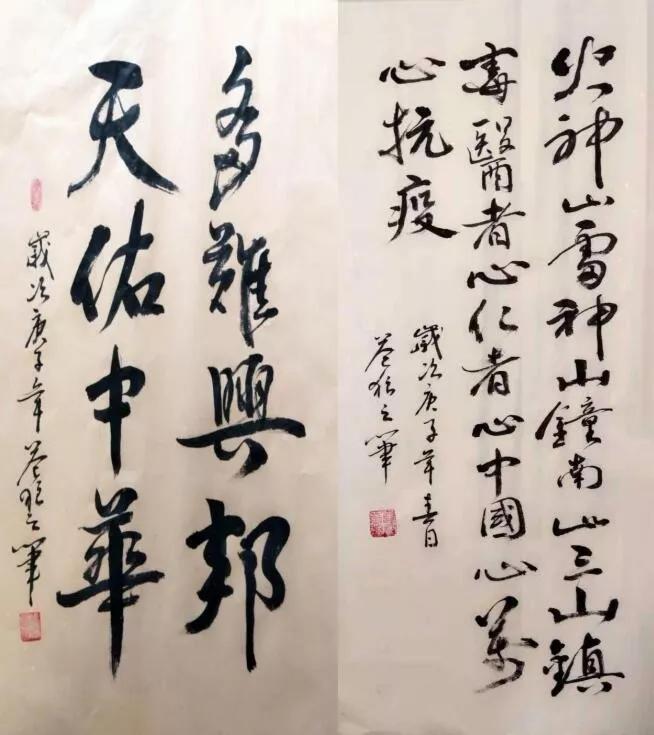 多難興邦
天佑中華
歲次庚子年 之筆
火神山雷神山鐘南山三山鎮
毒醫者心仁者心中國心萬
心抗疫
歲次庚子年春日
之筆